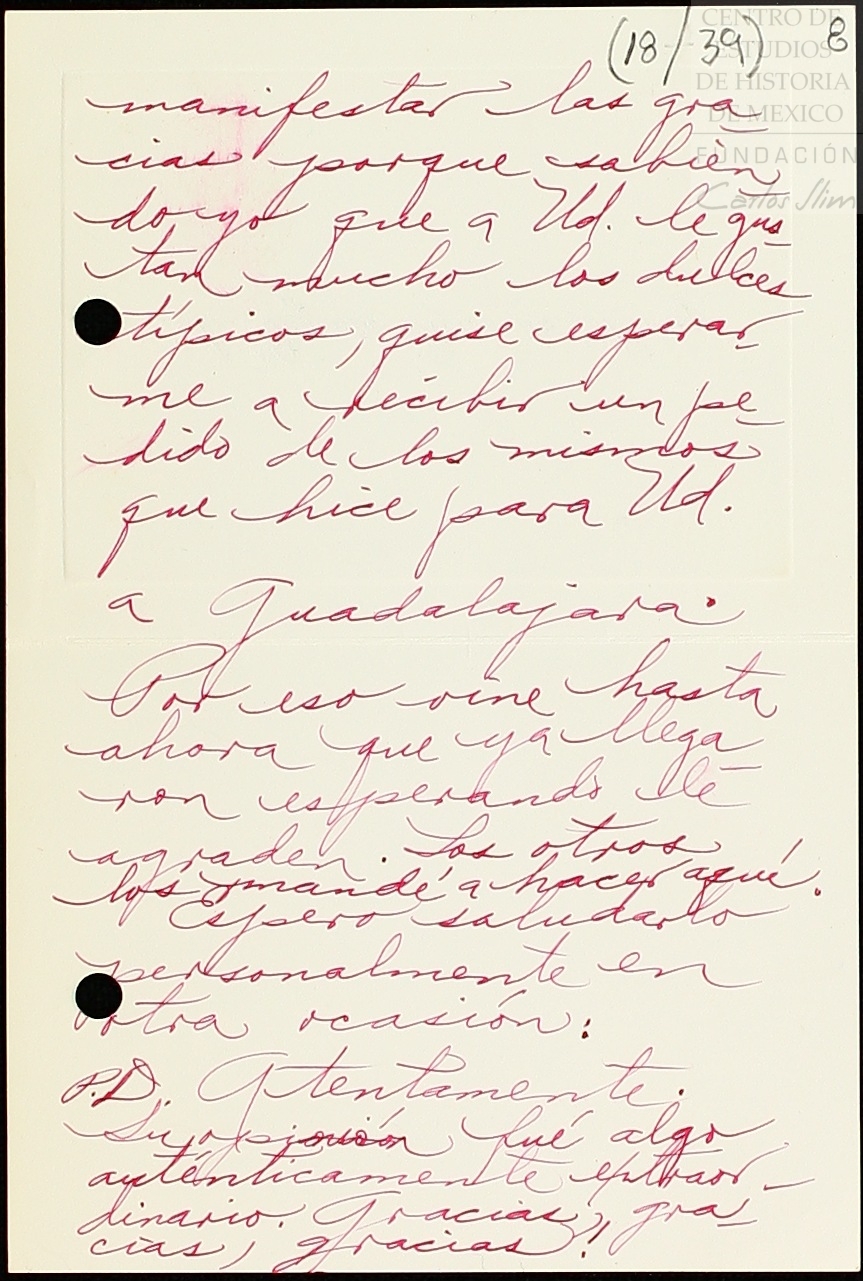 (18/39) 8
CENTRO DE
ESTUDIOS
DE HISTORIA
DE MEXICO
FUNDACIÓN
Carlos Slim
manifestar las gra-
cias porque sabien
do yo que a Ud. le gus-
tan mucho los dulces
típicos, quise esperar-
me a recibir un pe-
dido de los mismos
que hice para Ud.
a Guadalajara.
Por eso vine hasta
ahora que ya llega-
ron esperando le
agraden. Los otros
los mandé a hacer aquí.
Espero saludarlo
personalmente en
otra ocasión.
P.D. Atentamente.
Su opinión fué algo
auténticamente extraor-
dinario. Gracias, gra-
cias, gracias!